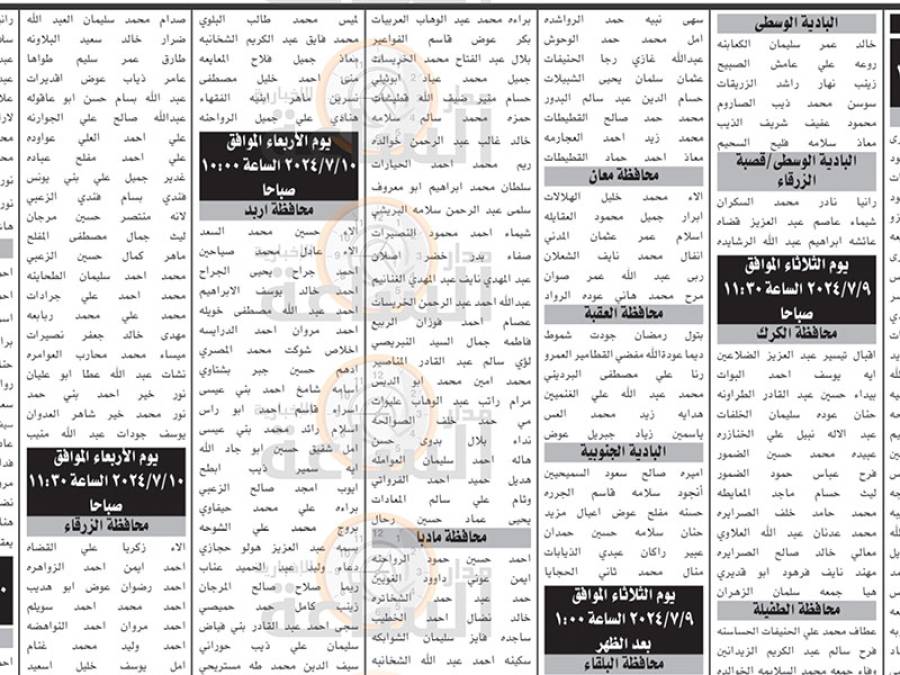 البادية الوسطى
خالد عمر سليمان الكعابنه
روعه علي عامش الصبيح
زينب نهار راشد الزريقات
سوسن محمد ذيب الصاروم
محمود عفيف شريف الذيب
معاذ سلامه فليح السحيم
البادية الوسطى/قصبة
الزرقاء
رانيا نادر محمد السكران
شيماء عاصم عبد العزيز قضاه
عائشه ابراهيم عبد الله الرشايده
يوم الثلاثاء الموافق
٢٠٢٤/٧/٩ الساعة ١١:٣٠
صباحا
محافظة الكرك
اقبال تيسير عبد العزيز الضلاعين
ايه يوسف احمد البوات
بيداء حسين عبد القادر الطراونه
حنان عوده سليمان الخلفات
عبد الاله نبيل علي الخنازره
عبيده محمد حسين الضمور
فرح عباس حمود الضمور
ليث حسام ماجد المعايطه
محمد حامد خلف الصرايره
محمد عدنان عبد الله العلاوي
معالي خالد صالح الصرايره
مهند نايف فرهود ابو قديري
هيا جمعه سلمان الزهران
محافظة الطفيلة
عطاف محمد علي الحنيفات الحساسنه
فرح سالم عبد الكريم الزيدانين
وفاء جمعه محمد السلايمه الخوالده
سهى نبيه حمد الرواشده
امل محمد حمد الوحوش
عبدالله غازي رجا الحنيفات
عثمان سلمان يحيى الشبيلات
حسام الدين عبد سالم البدور
محمد حمد صالح القطيطات
محمد زيد احمد العجارمه
معاذ احمد حماد القطيطات
محافظة معان
الاء محمد خليل الهلالات
ابرار جميل محمود العقايله
اسلام عمر عثمان المدني
انفال محمد نايف الشعلان
ربى عبد الله عمر صوان
مرح محمد هاني عوده الرواد
محافظة العقبة
بتول رمضان جودت شموط
ديما عودةالله مفضي القطامير العمرو
رنا علي مصطفى البرديني
محمد عبد الله علي الغنميين
هدايه زيد محمد العس
ياسمين زياد جبريل عوض
البادية الجنوبية
اميره صالح سعود السميحيين
أنجود سلامه قاسم الجرره
حسنه مفلح عوض اعيال مزيد
حنان سلامه حسين حمدان
عبير راكان عيدي الذيابات
منال محمد ثاني الحجايا
يوم الثلاثاء الموافق
٢٠٢٤/٧/٩ الساعة ١:٠٠
بعد الظهر
محافظة البلقاء
براءه محمد عبد الوهاب العربيات
بكر عوض قاسم الفواعير
بلال عبد الفتاح محمد الخريسات
جميل محمد عباد ابوثيلي
حسام منير ضيف الله قطيفات
حمزه محمد سالم سلامه
خالد غالب عبد الرحمن خوالده
ريم محمد احمد الحيارات
سلطان محمد ابراهيم ابو معروف
سلمى عبد الرحمن سلامه البريشي
شيماء احمد محمود النصيرات
صفاء بدر خضر اسلان
عبد المهدي نايف عبد المهدي الغنانيم
عبدالله احمد عبد الرحمن الخريسات
عصام احمد فوزان الربيع
فاطمه جمال السيد النبريصي
لؤي سالم عبد القادر المناصير
محمد امين محمد ابو الديس
مرام راتب عبد الوهاب عليوات
مي حمد خلف الصوالحه
نداء بلال بدوى حسن
هاله احمد سليمان العوامله
هديل حميد احمد الفرواتي
وئام علي سالم المعادات
يحيى عماد حسين رحال
محافظة مادبا
احمد حسين حمود الرواحنه
ايمن عوني زداوود القويين
حمد عبد حمد الشخاتره
خالد نضال احمد الخطيب
ساجده فايز سليمان الشوابكه
سكينه احمد عبد الله الشخانبه
لميس محمد طالب البلوي
محمد فايق عبد الكريم الشخانبه
معاذ جميل فلاح المعايعه
منى احمد خليل مصطفى
نسرين ماهر انيه الفقهاء
هنادي علي جميل الرواحنه
يوم الأربعاء الموافق
٢٠٢٤/٧/١٠ الساعة ١٠:٠٠
صباحا
محافظة اربد
الاء حسين محمد السعد
الاء عادل محمد صياحين
احمد جراح يحيى الجراح
احمد خالد يوسف الابراهيم
احمد عبد الله مصطفى خويله
احمد مروان احمد الدرايسه
اخلاص شوكت محمد المصري
ادهم حسين جبر بشتاوي
أسامه شامخ احمد بني عيسى
إسراء قاسم احمد ابو راس
اسلام رائد محمد بني عيسى
امل شفيق حسين ابو جاد الله
ايه سمير ذيب ابطح
ايوب امجد صالح الزعبي
براءه علي محمد حيفاوي
بروج محمد علي الشوحه
بسمه عبد العزيز هولو حجازي
دعاء وليد عبد الحميد عناب
ريما صلاح صالح المرجان
زينب كامل حمد حميصي
سجى احمد عبد القادر بني فياض
سليمان علي ذيب حوراني
سيف الدين محمد طه مستريحي
صدام محمد سليمان العبد الله
ضرار خالد سعيد البلاونه
طارق عمر سليم طواها
عامر ذياب عوض اقديرات
عبد الله بسام حسن ابو عاقوله
عبدالله صالح علي الجوارنه
علي احمد العلي عواوده
علي احمد مفلح عباده
غدير جميل علي بني يونس
فندي بسام فندي الزعبي
لانه منتصر حسين مرجان
ليث جمال مصطفى المفلح
ماهر كمال حسين الزعبي
محمد احمد سليمان الطحاينه
محمد احمد علي جرادات
محمد علي محمد ربابعه
مهدى خالد جعفر نصيرات
ميساء محمد محارب العوامره
نشات عبد الله عطا ابو عليان
نور خير احمد بني حمد
نور محمد خير شاهر العدوان
يوسف جودات عبد الله منيب
يوم الأربعاء الموافق
٢٠٢٤/٧/١٠ الساعة ١١:٣٠
صباحا
محافظة الزرقاء
الاء زكريا علي القضاه
احمد ايمن احمد الزواهره
احمد رضوان عوض ابو هديب
احمد محمد احمد سويلم
احمد مروان احمد النواهضه
احمد وليد محمد غنام
امل يوسف خليل اسعيد